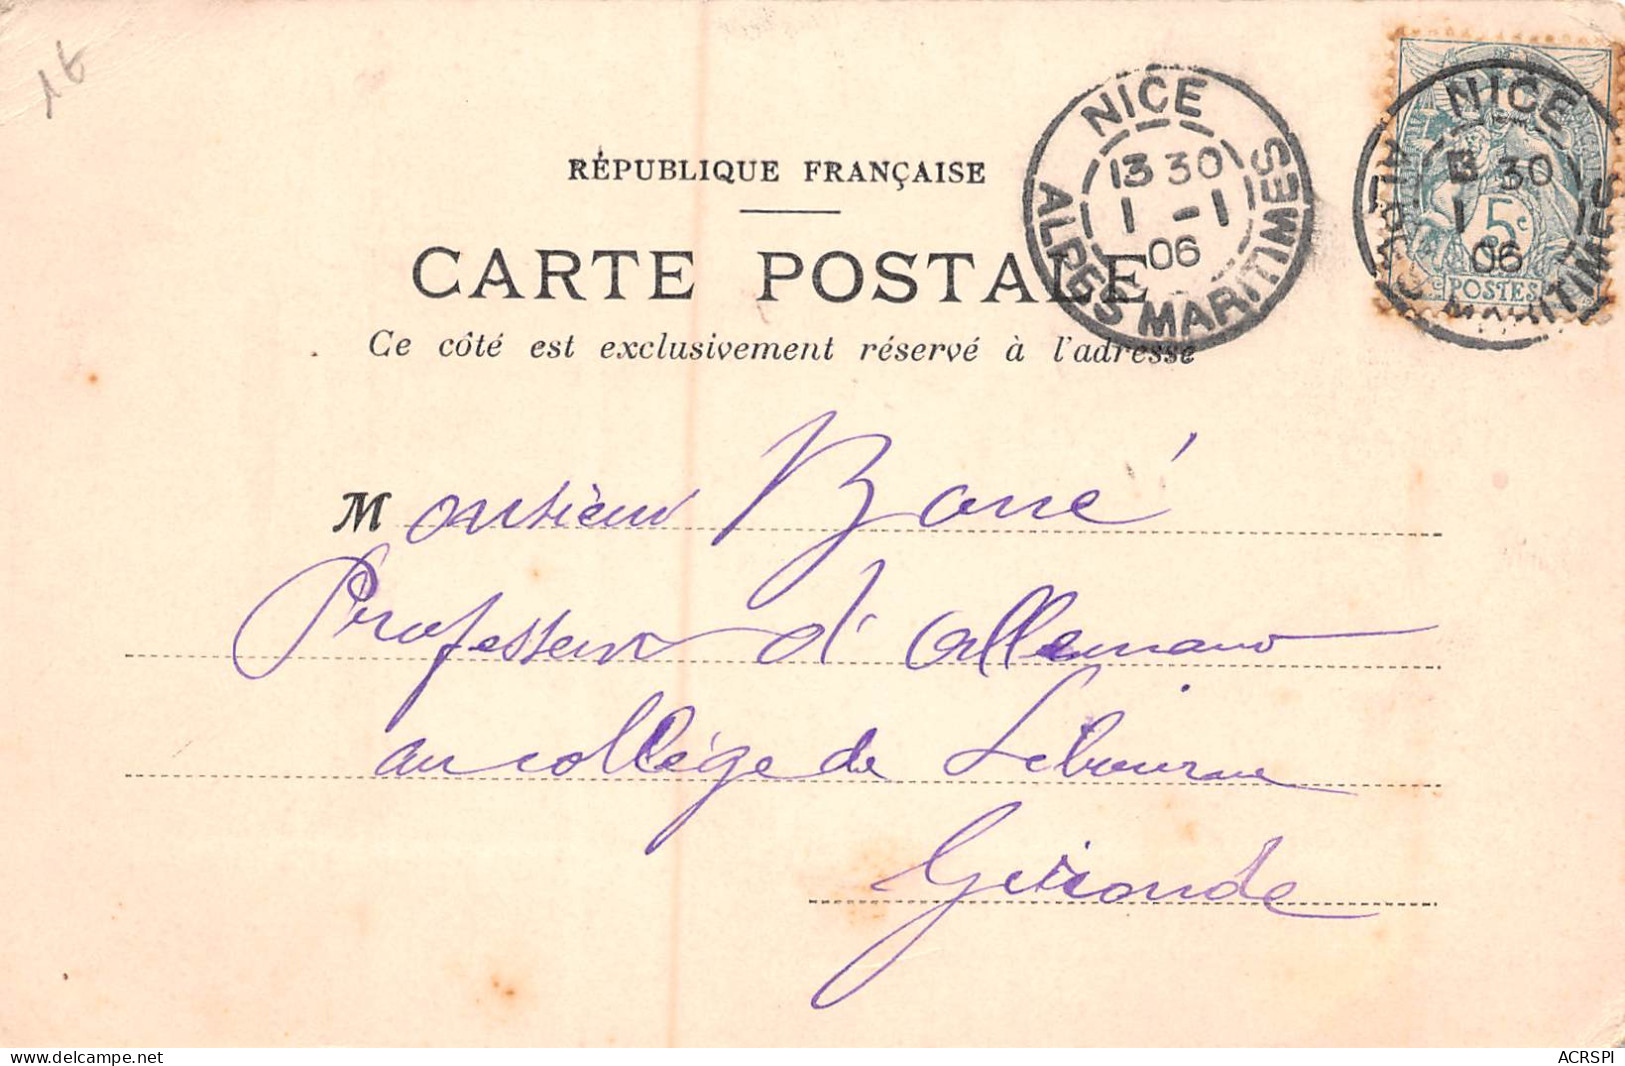 1 €
RÉPUBLIQUE FRANÇAISE
CARTE POSTALE
Ce côté est exclusivement réservé à l'adresse
NICE
13 30
1 -1
06
ALPES MARITIMES
NICE
13 30
1
06
ALPES MARITIMES
5c
POSTES
Monsieur Boné
Professeur d'Allemand
au collège de Libourne
Gironde
www.delcampe.net
ACRSPI